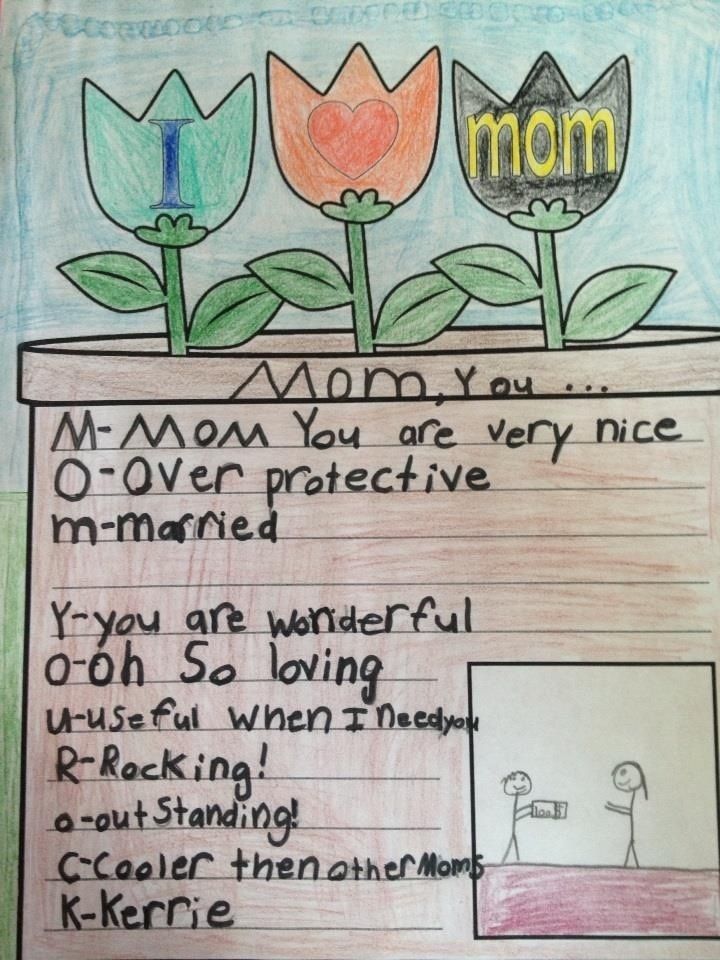 I ♥ mom
Mom, You ...
M-Mom You are very nice
O-Over protective
m-married
Y-you are wonderful
O-Oh So loving
U-useful when I Need you
R-Rocking!
o-outStanding!
C-Cooler then other Moms
K-Kerrie
100$